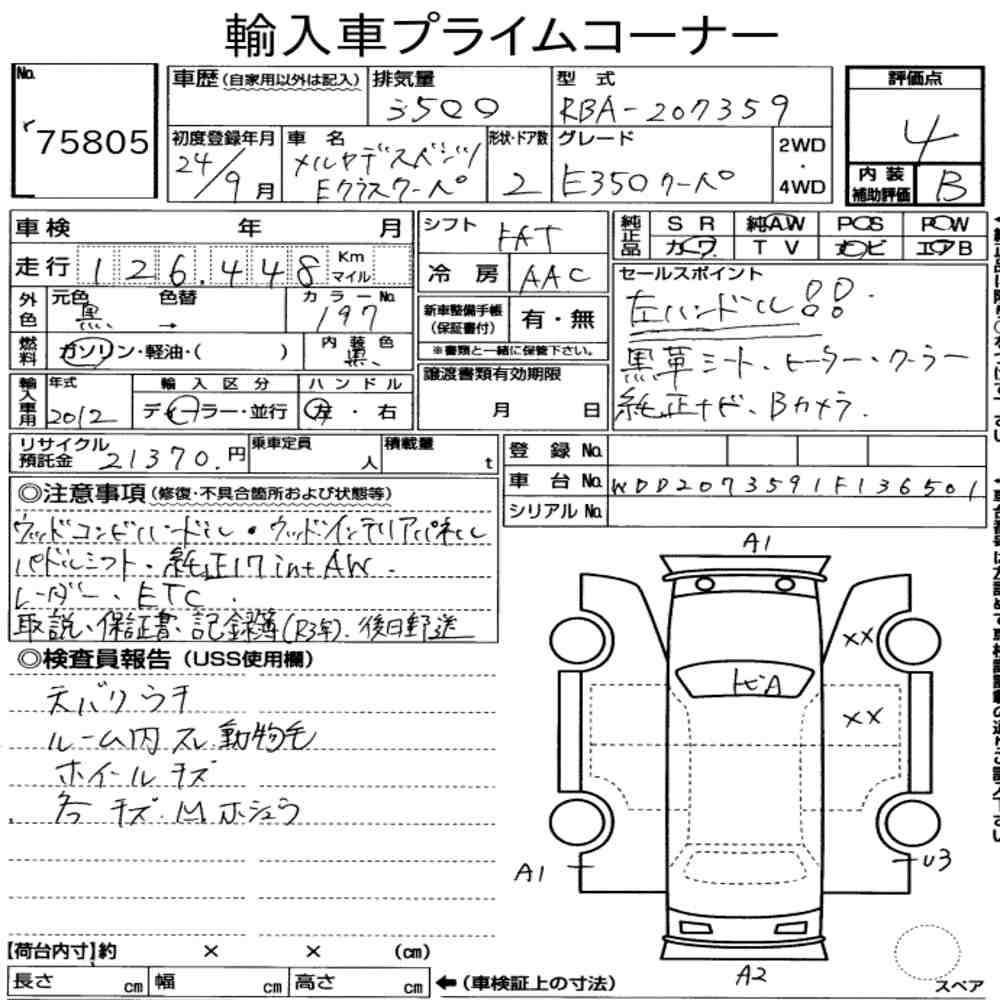 輸入車プライムコーナー
No. 75805
車歴(自家用以外は記入) 排気量 3500 型式 RBA-207359
評価点 4
初度登録年月 24/9月 車名 メルセデスベンツ Eクラスクーペ 形状・ドア数 2 グレード E350クーペ 2WD・4WD
内装補助評価 B
車検 年 月
走行 126.448 Km マイル
シフト FAT
冷房 AAC
純正品 SR 純AW PCS PCW
カワ TV ナビ エアB
外色 元色 黒 → 色替 カラーNo 197
燃料 ガソリン・軽油・( ) 内装色 黒
新車整備手帳(保証書付) 有・無
※書類と一緒に保管下さい。
セールスポイント
左ハンドル!!
黒革シート・ヒーター・クーラー
純正ナビ・Bカメラ.
輸入車用 年式 2012 輸入区分 ディーラー・並行 ハンドル 左・右
譲渡書類有効期限 月 日
リサイクル預託金 21370.円 乗車定員 人 積載量 t
登録No.
車台No. WDD2073591F136501
シリアルNo.
◎注意事項(修復・不具合箇所および状態等)
ウッドコンビハンドル・ウッドインテリアパネル
パドルシフト・純正17intAW.
レーダー・ETC.
取説、保証書、記録簿(R3年).後日郵送
◎検査員報告(USS使用欄)
天バリウキ
ルーム内スレ動物毛
ホイールキズ
各キズ.凹.ホシュウ
A1
××
ヒA
××
A1
U3
A2
スペア
【荷台内寸】約 × × (cm)
長さ cm 幅 cm 高さ cm ←(車検証上の寸法)